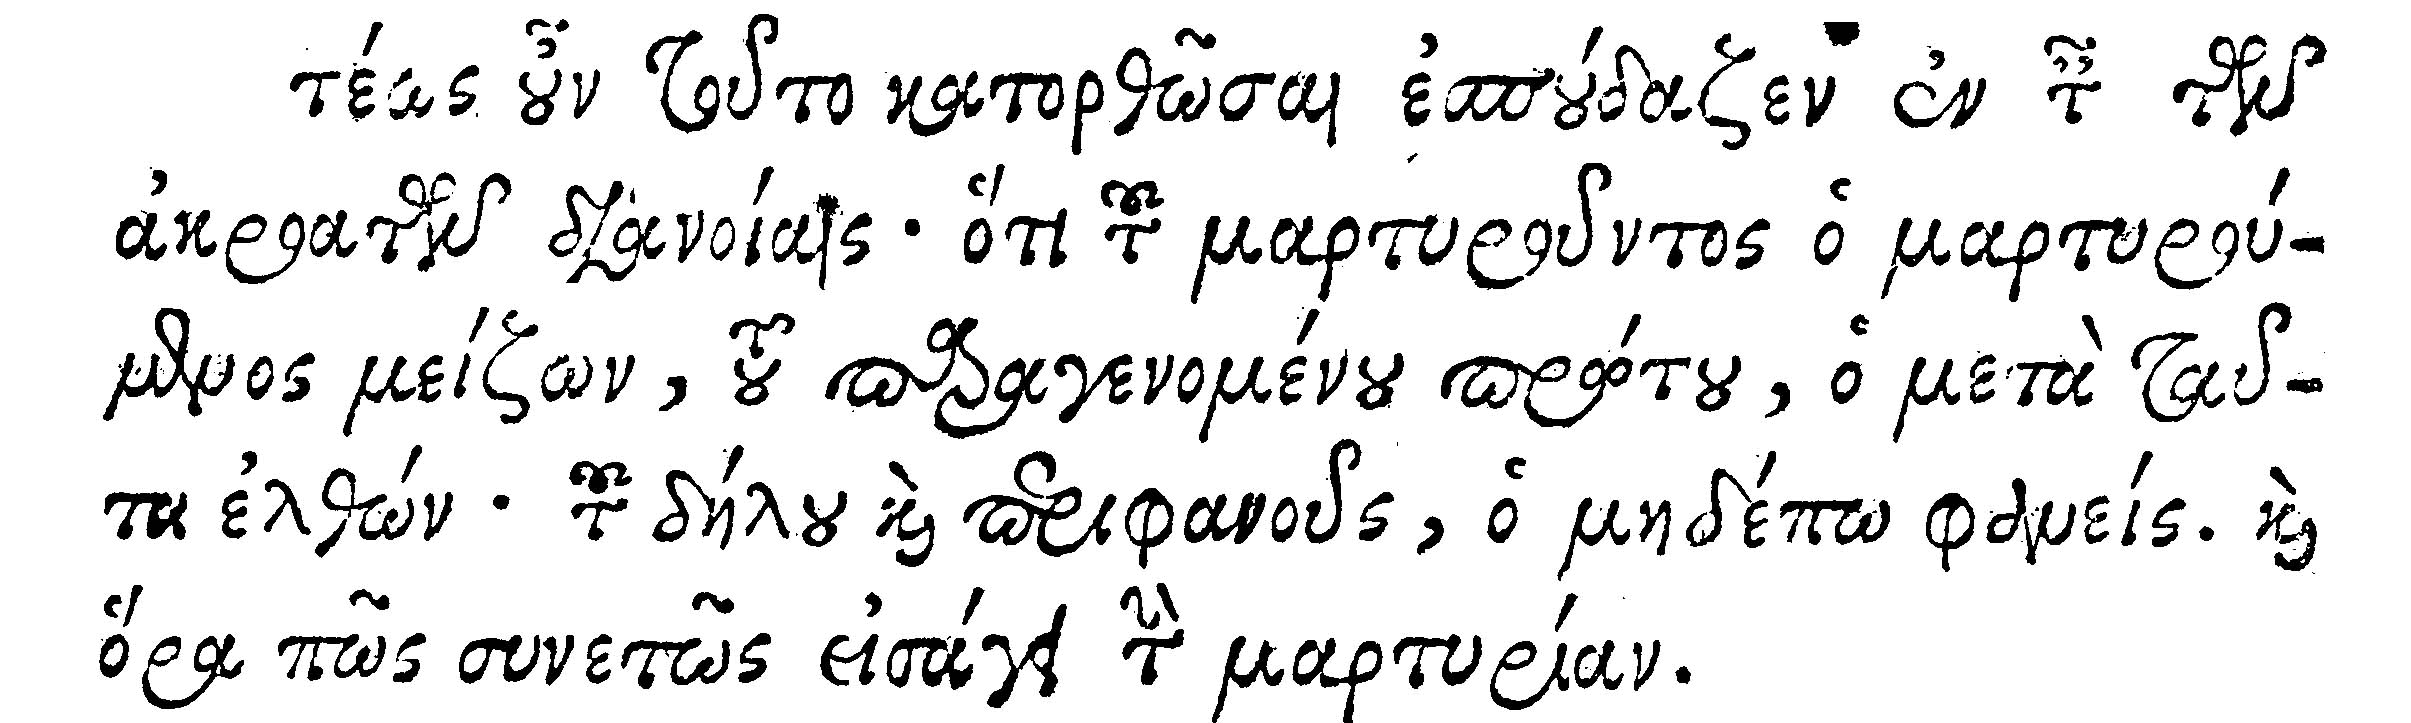 τέως οὖν τοῦτο κατορθῶσαι ἐσπούδαζεν ἐν ταῖς τῶν
ἀκροατῶν διανοίαις· ὅτι τοῦ μαρτυροῦντος ὁ μαρτυρού-
μενος μείζων, τοῦ παραγενομένου πρώτου, ὁ μετὰ ταῦ-
τα ἐλθών· τοῦ δήλου καὶ περιφανοῦς, ὁ μηδέπω φανείς. καὶ
ὅρα πῶς συνετῶς εἰσάγει τὴν μαρτυρίαν.